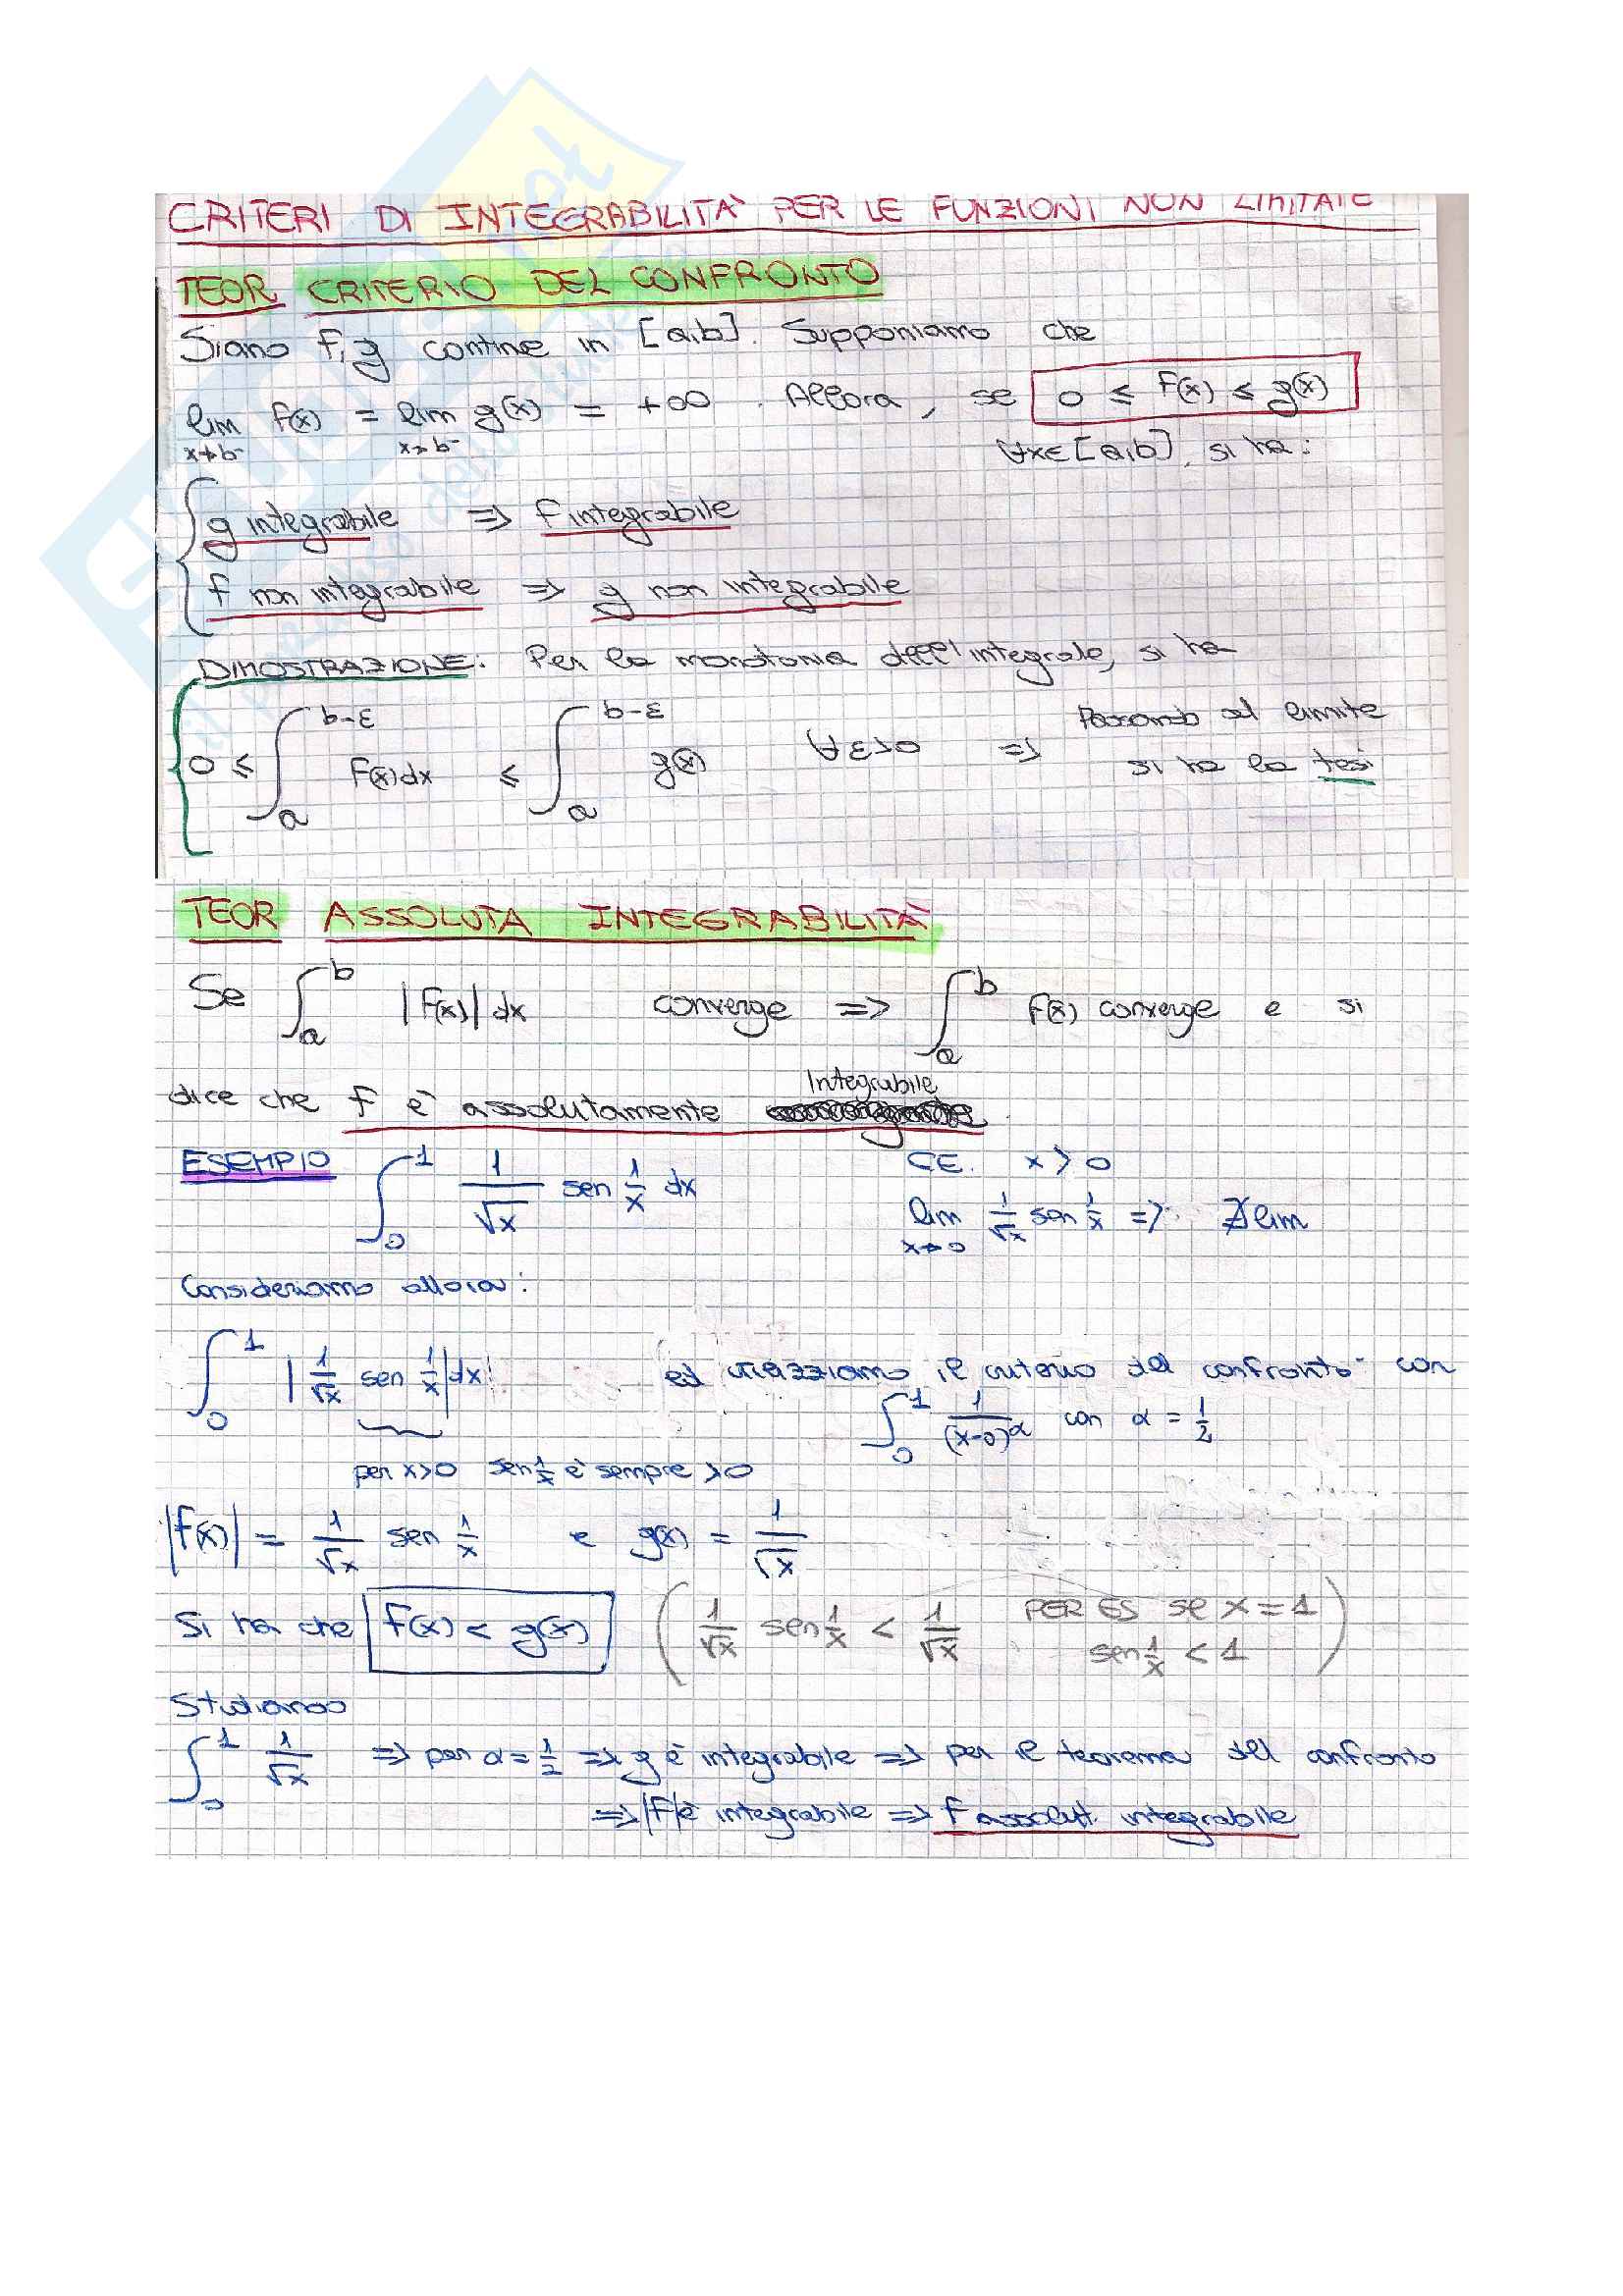 CRITERI DI INTEGRABILITÀ PER LE FUNZIONI NON LIMITATE
TEOR CRITERIO DEL CONFRONTO
Siano f, g continue in [a,b]. Supponiamo che
lim f(x) = lim g(x) = +∞. Allora, se 0 ≤ f(x) ≤ g(x)
x→b⁻ x→b⁻ ∀x∈[a,b], si ha:
g integrabile => f integrabile
f non integrabile => g non integrabile
DIMOSTRAZIONE: Per la monotonia dell'integrale, si ha
0 ≤ ∫_a^{b-ε} f(x)dx ≤ ∫_a^{b-ε} g(x) ∀ε>0 => Passando al limite
si ha la tesi
TEOR ASSOLUTA INTEGRABILITÀ
Se ∫_a^b |f(x)| dx converge => ∫_a^b f(x) converge e si
dice che f è assolutamente Integrabile
ESEMPIO ∫_0^1 1/√x sen 1/x dx C.E. x > 0
lim x→0 1/√x sen 1/x => ∄ lim
Consideriamo allora:
∫_0^1 |1/√x sen 1/x| dx ed utilizziamo il criterio del confronto con
∫_0^1 1/(x-0)^α con α = 1/2
per x>0 sen 1/x è sempre >0
|f(x)| = 1/√x sen 1/x e g(x) = 1/√x
Si ha che f(x) < g(x) (1/√x sen 1/x < 1/√x PER ES se x = 1
sen 1/x < 1)
Studiando
∫_0^1 1/√x => per α = 1/2 => g è integrabile => per il teorema del confronto
=> |f| è integrabile => f assolut. integrabile